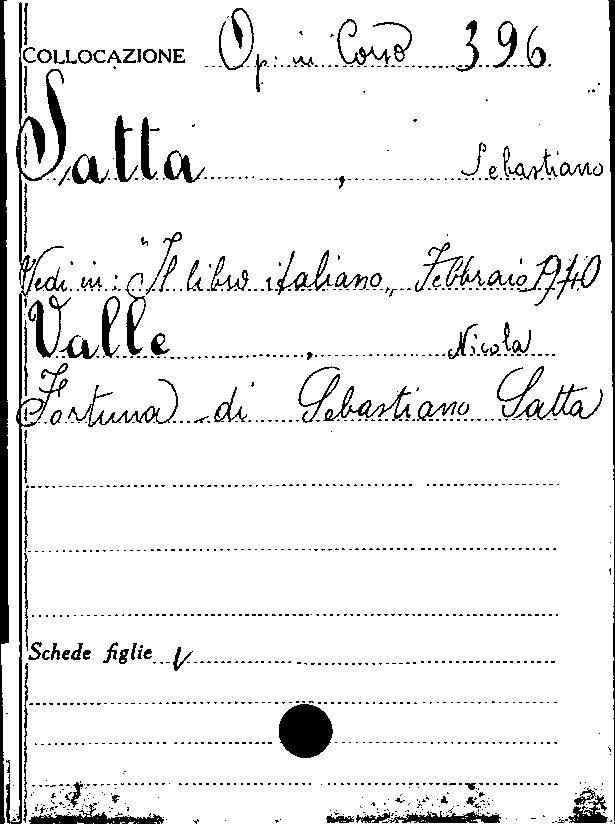 COLLOCAZIONE Op. in Corso 396
Satta, Sebastiano
Vedi in: "Il libro italiano„ Febbraio 1940
Valle, Nicola
Fortuna di Sebastiano Satta
Schede figlie V